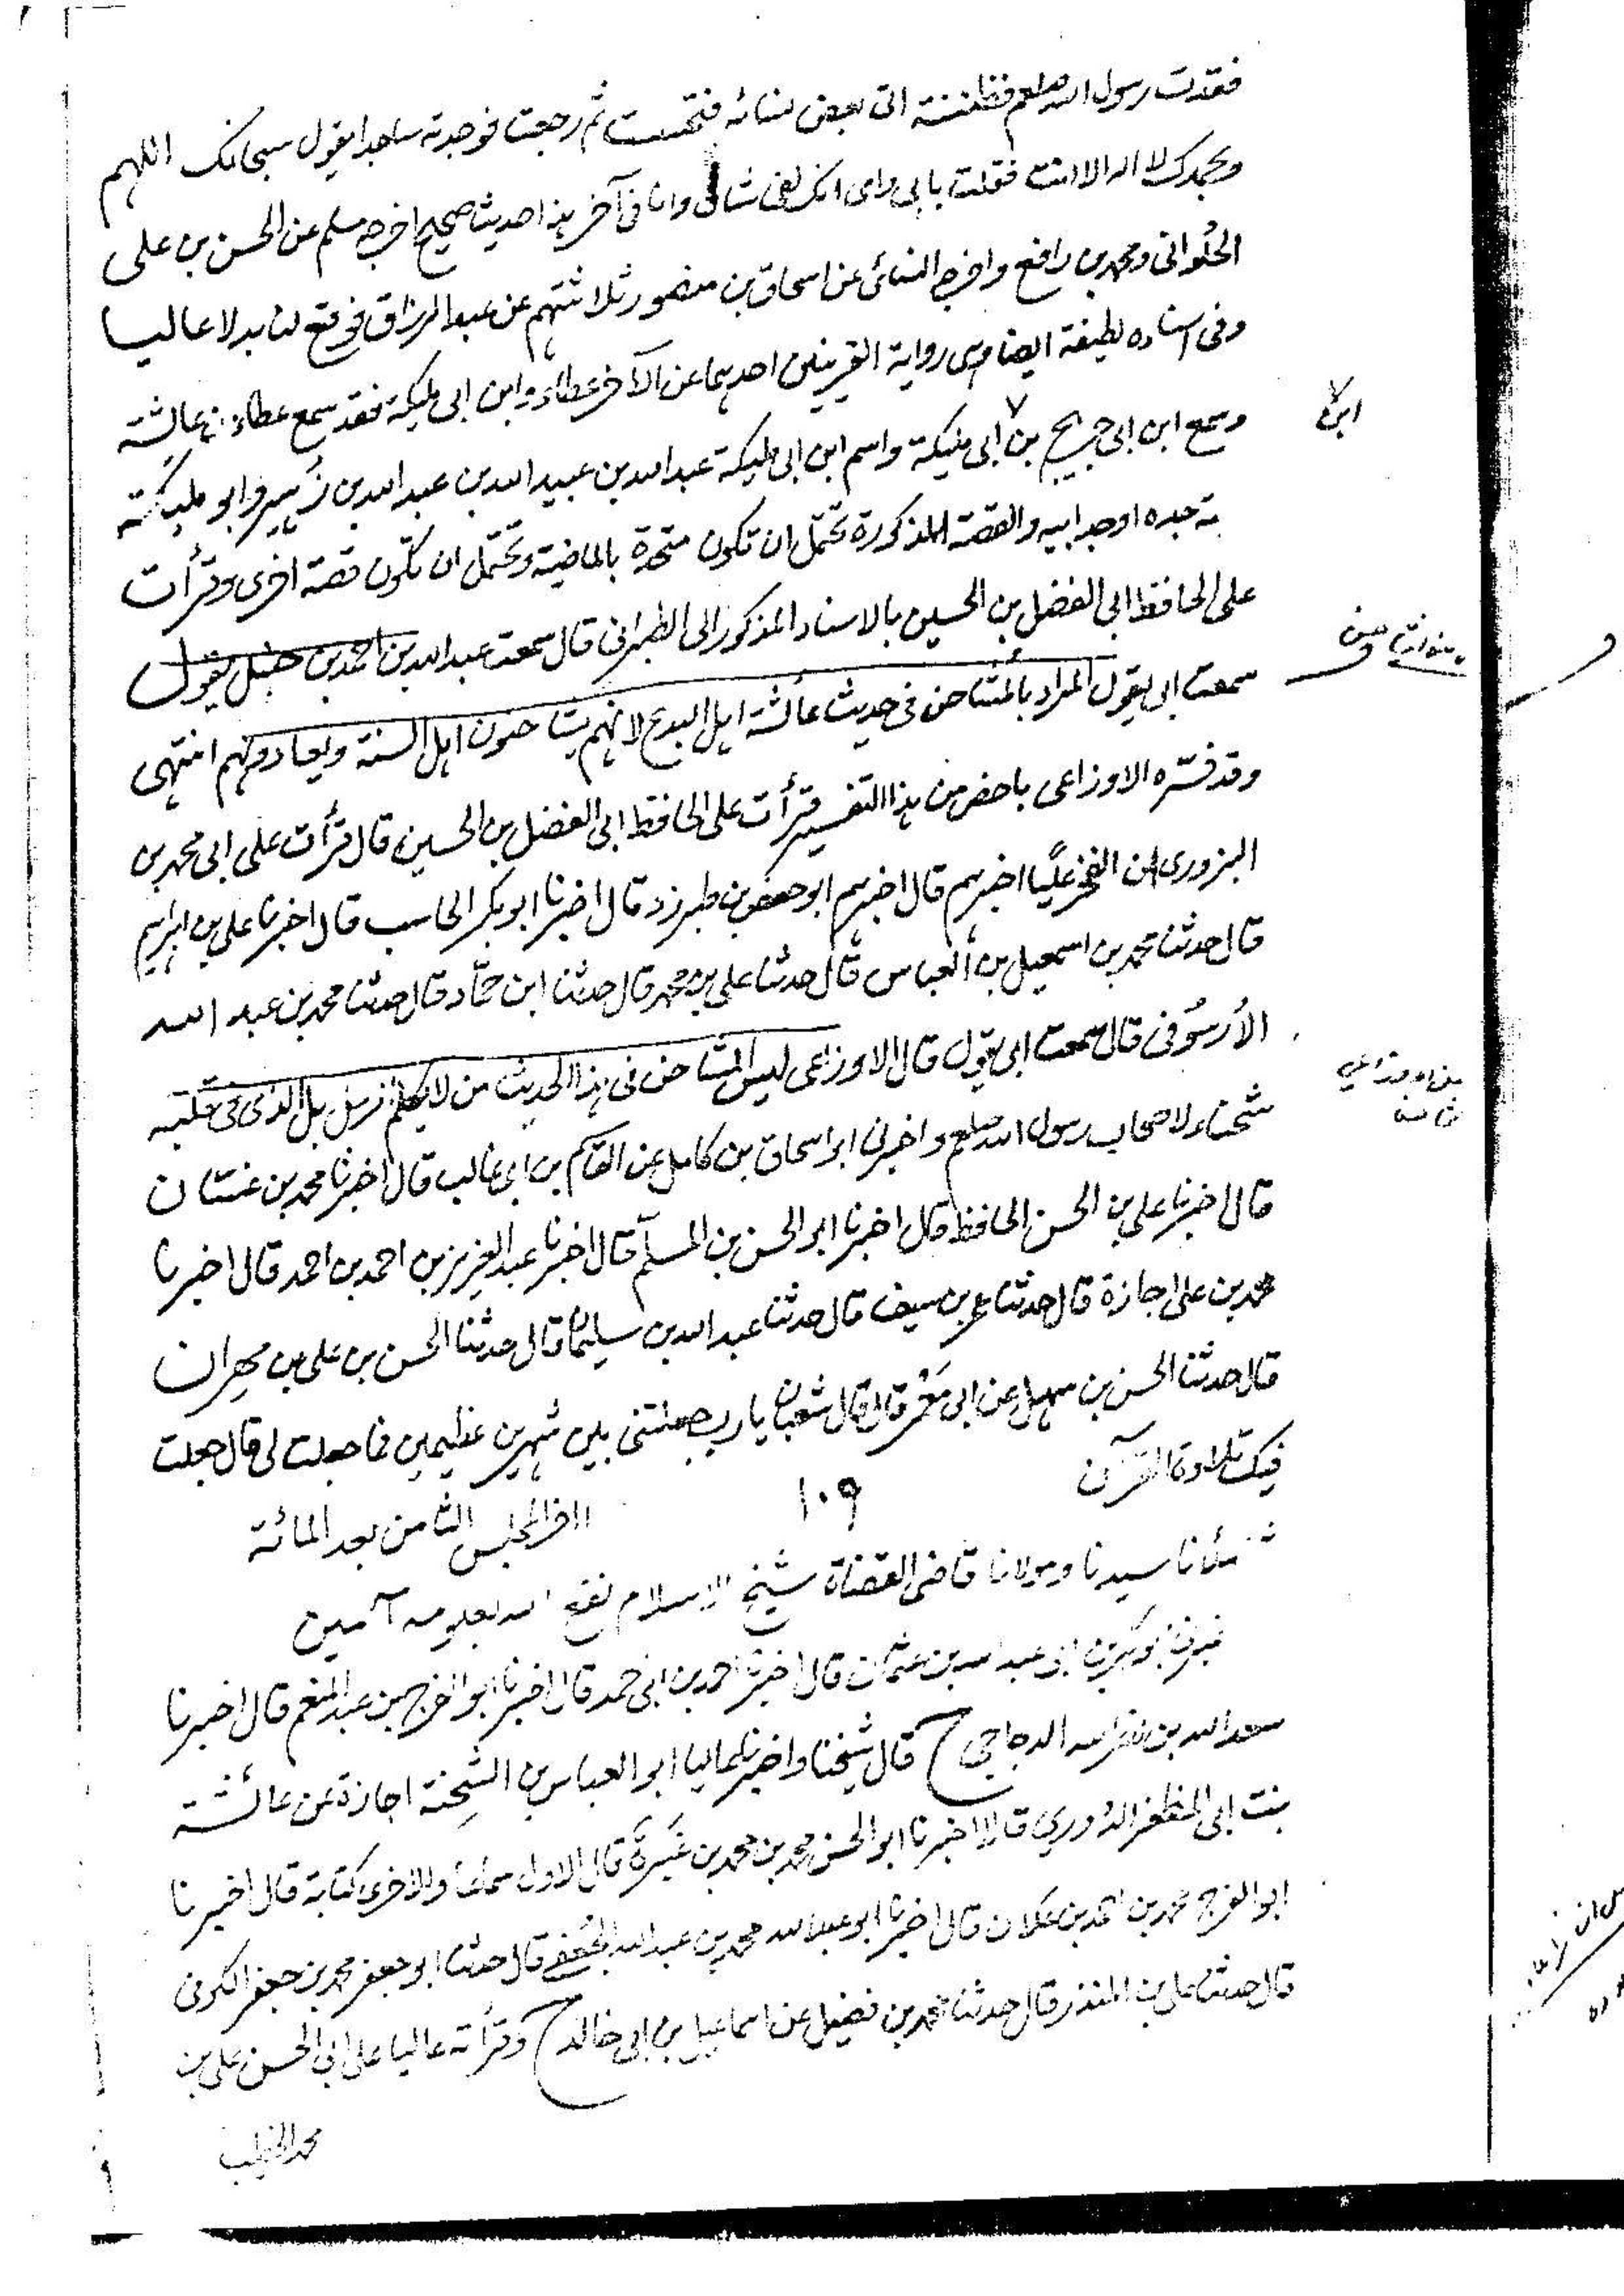 فقدت رسول الله صلعم فظننته اتى بعض نسائه فتحسست ثم رجعت فوجدته ساجدا يقول سبحانك اللهم
وبحمدك لا اله الا انت فقلت بابى وامى انك لفى شان وانا فى آخر هذا حديث صحيح اخرجه مسلم عن الحسن بن على
الحُلوانى ومحمد بن رافع واخرجه النسائى عن اسحاق بن منصور ثلاثتهم عن عبد الرزاق فوقع لنا بدلا عاليا
وفى اسناده لطيفة ايضا وهى رواية القرينين احدهما عن الآخر عطاء وابن ابى مليكة فقد سمع عطاء من عائشة
وسمع ابن ابى جريج بن ابى مليكة واسم ابن ابى مليكة عبد الله بن عبيد الله بن عبد الله بن زُهير وابو مليكة
ابن
جده او جد ابيه والقصة المذكورة تحتمل ان تكون متحدة بالماضية وتحتمل ان تكون قصة اخرى وقرأت
على الحافظ ابى الفضل بن الحسين بالاسناد المذكور الى الطبرانى قال سمعت عبد الله بن احمد بن حنبل يقول
سمعت ابى يقول المراد بالمشاحن فى حديث عائشة اهل البدع لانهم يشاحنون اهل السنة ويعادونهم انتهى
وقد فسّره الاوزاعى باخص من هذا التفسير قرأت على الحافظ ابى الفضل بن الحسين قال قرأت على ابى محمد بن
البزورى ان الفخر عليًّا اخبرهم قال اخبرهم ابو حفص بن طبرزد قال اخبرنا ابو بكر الحاسب قال اخبرنا على بن ابراهيم
قال حدثنا محمد بن اسمعيل بن العباس قال حدثنا على بن محمد قال حدثنا ابن حمّاد قال حدثنا محمد بن عبد الله
الأرسُوفى قال سمعت ابى يقول قال الاوزاعى ليس المشاحن فى هذا الحديث من لا يكلم الرجل بل الذى فى قلبه
شحناء لاصحاب رسول الله صلعم واخبرنى ابو اسحاق بن كامل عن القاسم بن ابى غالب قال اخبرنا محمد بن غسّان
قال اخبرنا على بن الحسن الحافظ قال اخبرنا ابو الحسن بن المسلم قال اخبرنا عبد العزيز بن احمد بن احمد قال اخبرنا
محمد بن على اجازة قال حدثنا عمر بن سيف قال حدثنا عبد الله بن سليمان قال حدثنا الحسن بن على بن مهران
قال حدثنا الحسن بن سهيل عن ابى معمر قال قال شعبان يا رب جعلتنى بين شهرين عظيمين فما جعلت لى قال جعلت
فيك تلاوة القرآن
١٠٩
اخر المجلس الثامن بعد المائة
سيدنا ومولانا قاضى القضاة شيخ الاسلام نفع الله بعلومه آمين
ابى عبد الله بن عثمان قال اخبرنا احمد بن ابى احمد قال اخبرنا ابو الفرج بن عبد المنعم قال اخبرنا
سعد الله بن نصر الله الدجاجى ح قال شيخنا واخبرنا عاليا ابو العباس بن الشحنة اجازة عن عائشة
بنت ابى المظفر الدورى قالا اخبرنا ابو الحسن محمد بن محمد بن غَبَرة قال الاول سماعا والاخرى كتابة قال اخبرنا
ابو الفرج محمد بن احمد بن علان قال اخبرنا ابو عبد الله محمد بن عبد الله الجُعفى قال حدثنا ابو جعفر محمد بن جعفر الكوفى
قال حدثنا على بن المنذر قال حدثنا محمد بن فضيل عن اسماعيل بن ابى خالد ح وقرأته عاليا على ابى الحسن على بن
محمد الخطيب